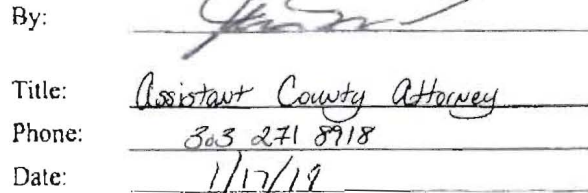 By:
Title: Assistant County Attorney
Phone: 303 271 8918
Date: 1/17/19